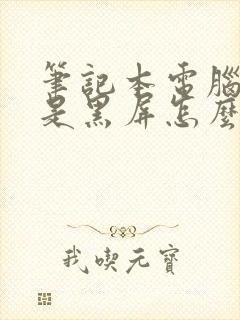 筆記本電腦
是黑屏怎麼
我喫元寶